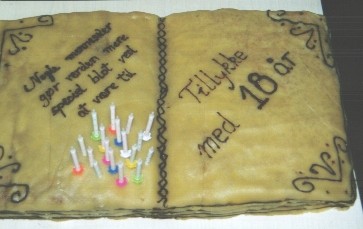 Nogle mennesker
gør verden mere
speciel blot ved
at være til
Tillykke
med 18 år